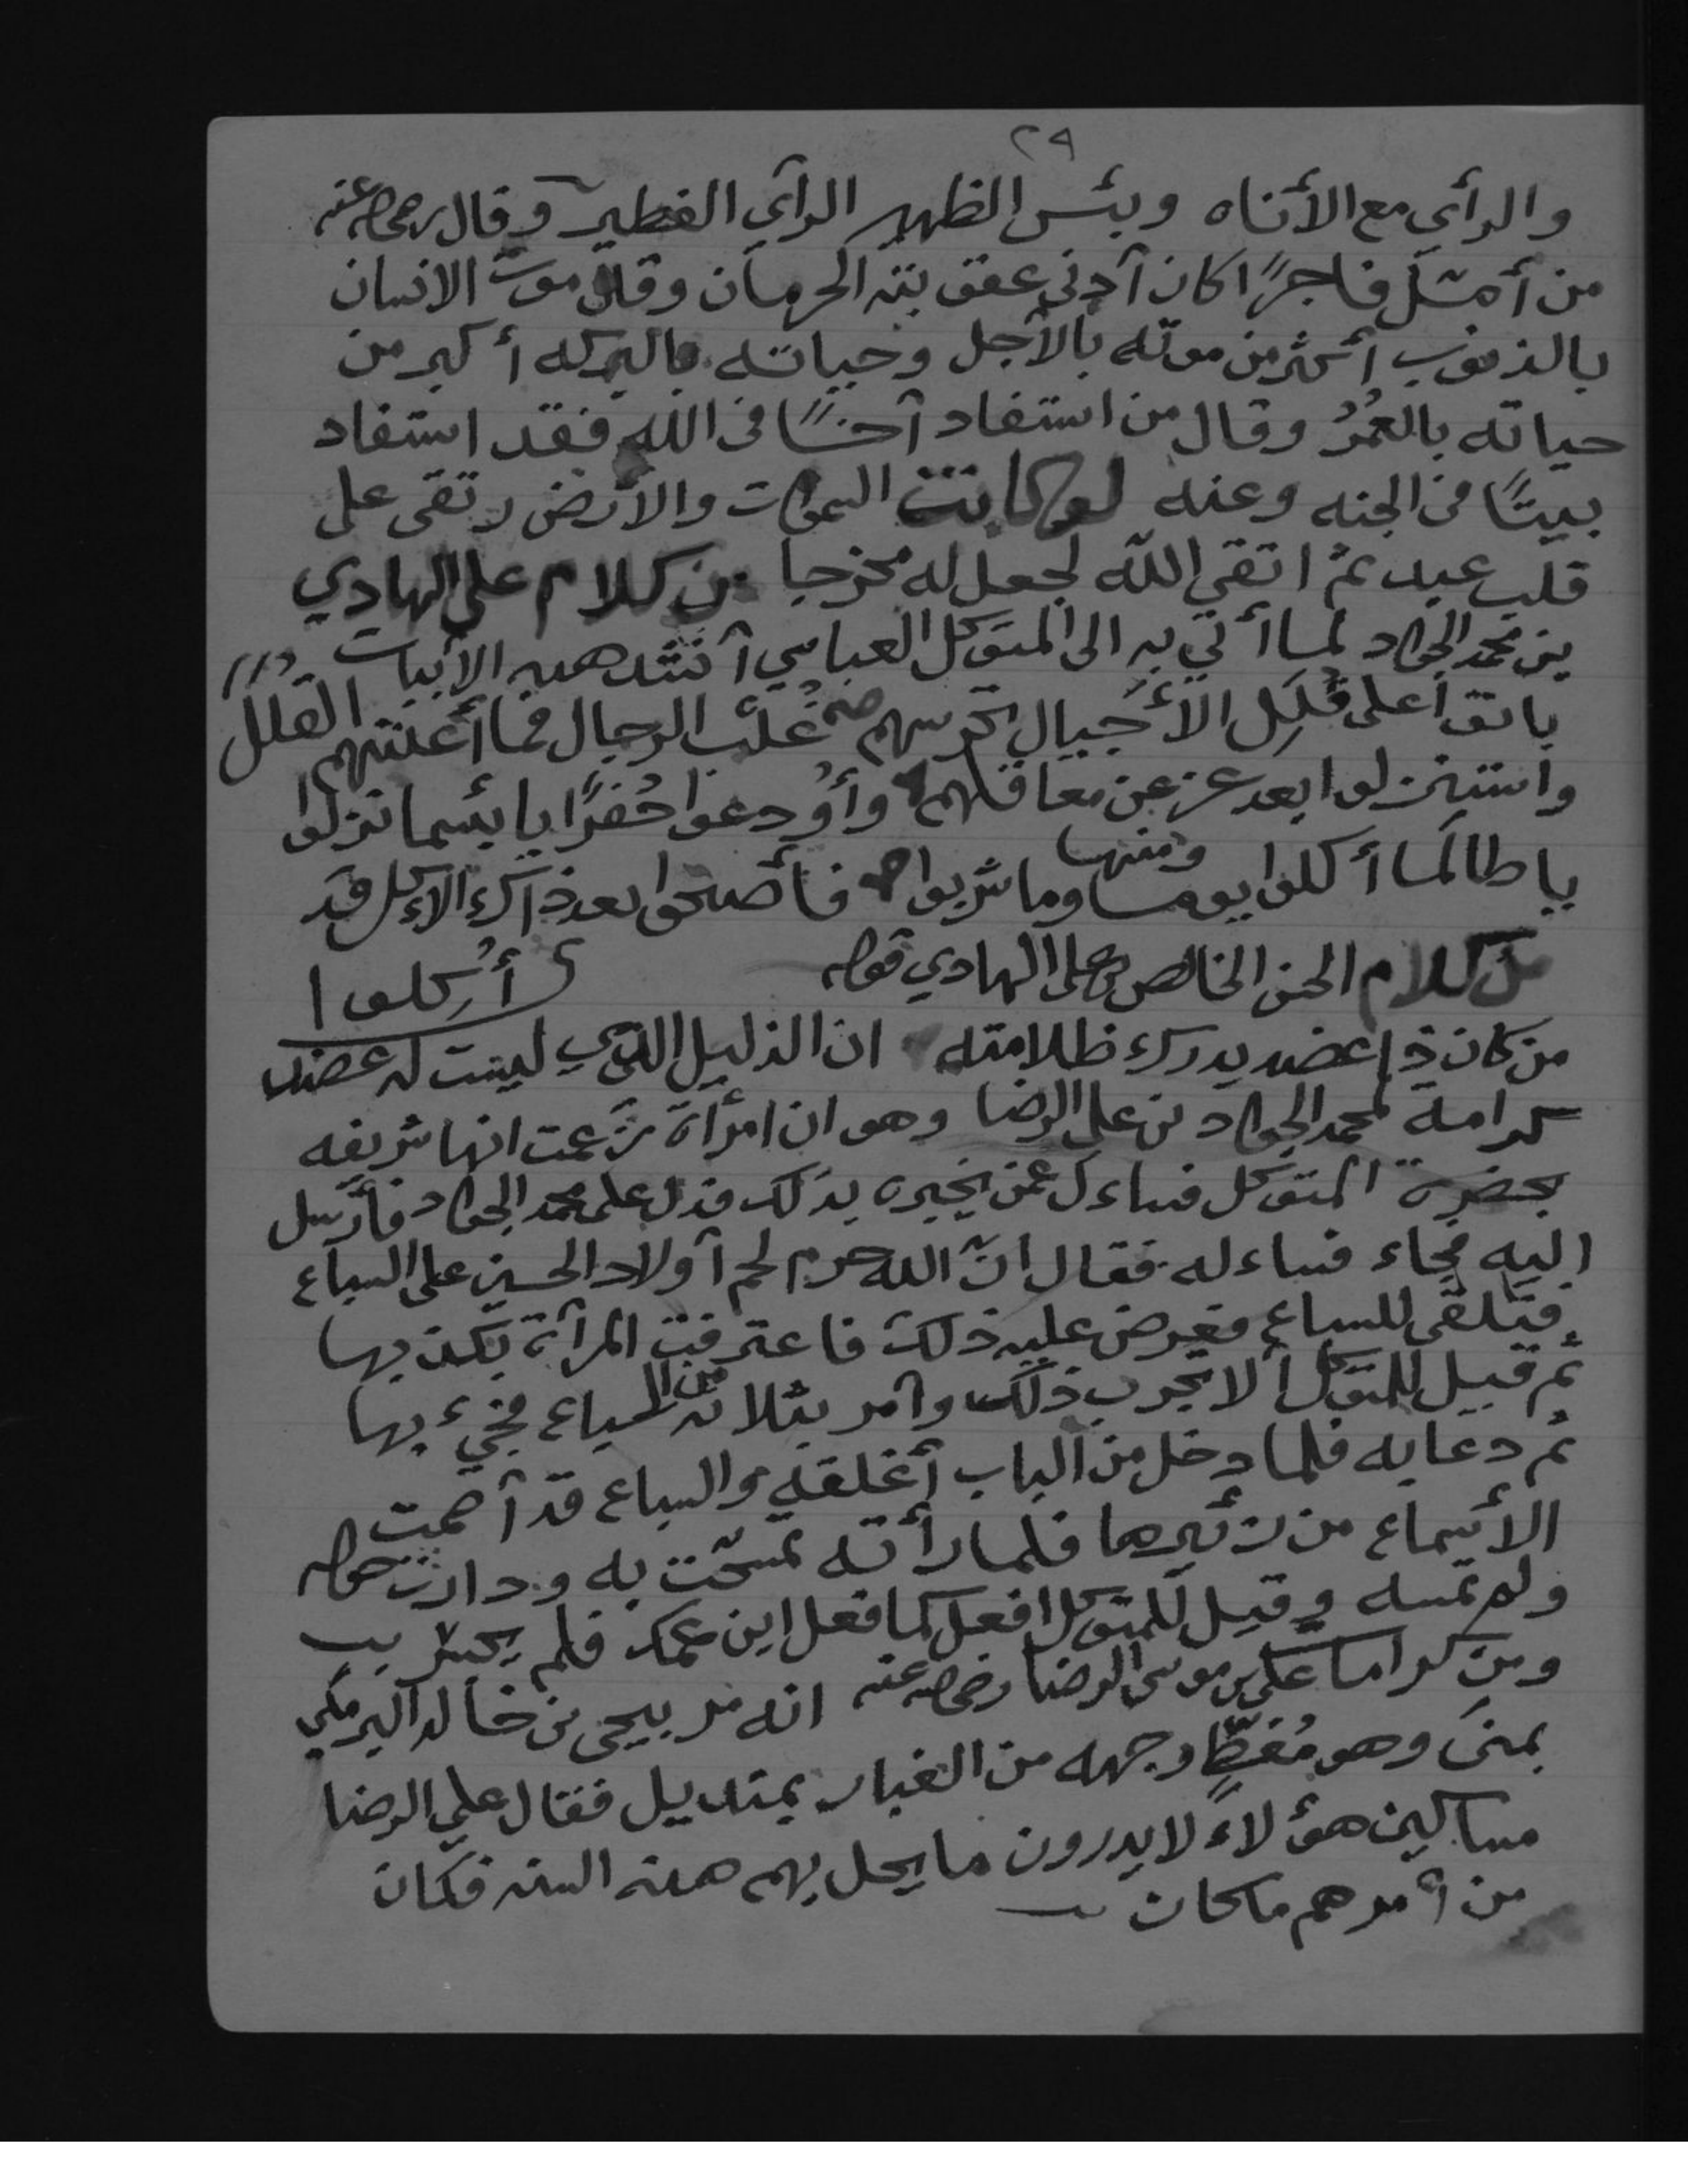 ٢٩
والرأي مع الأناه وبئس الظهير الرآي الفطير وقال رضي الله عنه
من أمل فاجرًا كان آدنى عقوبته الحرمان وقال موت الانسان
بالذنوب أكثر من موته بالآجل وحياته بالبركه أكبر من
حياته بالعُمُرُ وقال من استفاد آخًا في الله فقد استفاد
بيتًا في الجنه وعنه لو كانت السموات والأرض رتقى على
قلب عبد ثم اتقى الله لجعل له مخرجا من كلام علي الهادي
بن محمد الجواد لما أتي به الى المتوكل العباسي آنشد هذه الأبيات
باتوا على قُلَلِ الأجبال تحرسهم غُلْبُ الرجال فما أغنتهم القلل
واستنزلوا بعد عز عن معاقلهم وأودعوا حُفرًا يا بئسما نزلوا
ومنها
يا طالما أكلوا يوما وما شربوا فأصبحوا بعد ذاك الأكل قد
أُكلوا
من كلام الحسن الخالص بن على الهادي قوله
من كان ذا عضد يدرك ظلامته ان الذليل الذي ليست له عضد
كرامة لمحمد الجواد بن علي الرضا وهو ان امرأة زعمت انها شريفه
بحضرة المتوكل فساءل عمن يخبره بذلك فدل على محمد الجواد فأرسل
اليه فجاء فساءله فقال ان الله حرم لحم آولاد الحسين على السباع
فتلقى للسباع فعرض عليه ذلك فاعترفت المرآة بكذبها
ثم قيل للمتوكل ألا تجرب ذلك وآمر بثلاثه من السباع فجيء بها
ثم دعا به فلما دخل من الباب أغلقه والسباع قد آصمت
الأسماع من زئيرها فلما رأته تمسحت به ودارت حوله
ولم تمسه وقيل للمتوكل افعل كما فعل ابن عمك فلم يجسر
ومن كراما على بن موسى الرضا رضي الله عنه انه مر بيحي بن خالد البرمكي
بمنى وهو مُغطٍّ وجهه من الغبار بمنديل فقال علي الرضا
مساكين هؤلاء لا يدرون ما يحل بهم هذه السنه فكان
من آمرهم ما كان